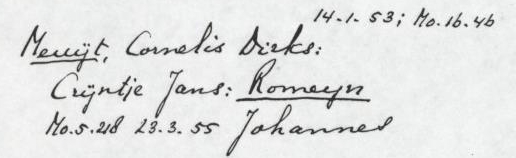 14.1.53; Mo.16.46
Meuijt, Cornelis Dirks:
Crijntje Jans: Romeyn
Mo.5.218 23.3.55 Johannes